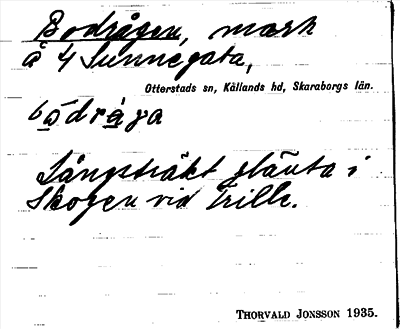 Bodrågen, mark
å 4 Sunnegata,
Otterstads sn, Kållands hd, Skaraborgs län.
bódråga
Långsträkt slänta i
Skogen vid Trille.
THORVALD JONSSON 1935.